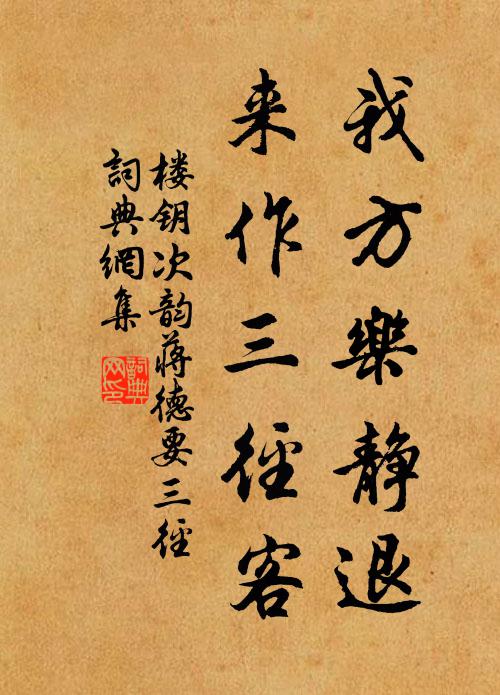 我方樂静退
来作三徑客
楼钥次韵蒋德要三徑
詞典網集
詞典
网印